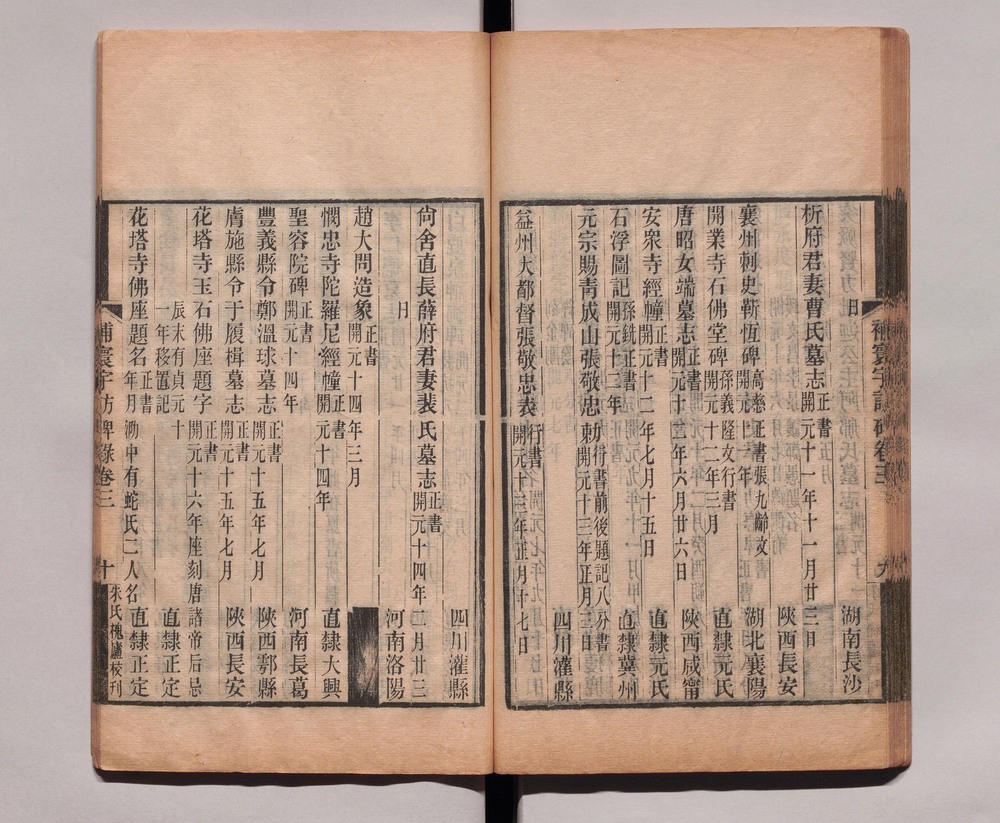 湖南長沙
析府君妻曹氏墓志
正書
開元十一年十一月廿三日
陝西長安
襄州刺史靳恆碑
高慈正書張九齡文
開元十一年
湖北襄陽
開業寺石佛堂碑
孫義隆文行書
開元十二年三月
直隸元氏
唐昭女端墓志
正書
開元十二年六月廿六日
陝西咸甯
安衆寺經幢
正書
開元十二年七月十五日
直隸元氏
石浮圖記
孫銑正書
開元十二年
直隸冀州
元宗賜青成山張敬忠
行書前後題記八分書
開元十三年正月三日
四川灌縣
益州大都督張敬忠表
行書
開元十三年正月十七日
四川灌縣
尙舍直長薛府君妻裴氏墓志
正書
開元十四年二月廿三
日
河南洛陽
趙大問造象
正書
開元十四年三月
憫忠寺陀羅尼經幢
正書
開元十四年
直隸大興
聖容院碑
正書
開元十四年
河南長葛
豐義縣令鄭溫球墓志
正書
開元十五年七月
陝西鄠縣
膚施縣令于履楫墓志
正書
開元十五年七月
陝西長安
花塔寺玉石佛座題字
正書
開元十六年座刻唐諸帝后忌
辰末有貞元十
一年移置記
直隸正定
花塔寺佛座題名
正書
年月泐中有蛇氏二人名
直隸正定
補寰宇訪碑錄卷三
十
朱氏槐廬校刊